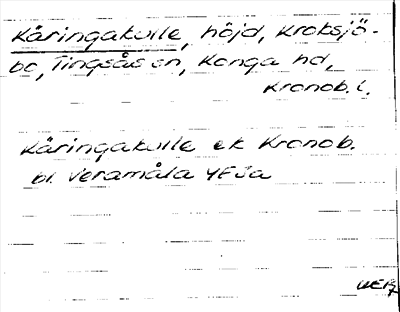 Käringakulle, höjd, Kroksjö-
bo, Tingsås sn, Konga hd,
Kronob. l.
Käringakulle ek Kronob.
bl. Veramåla 4E Ja